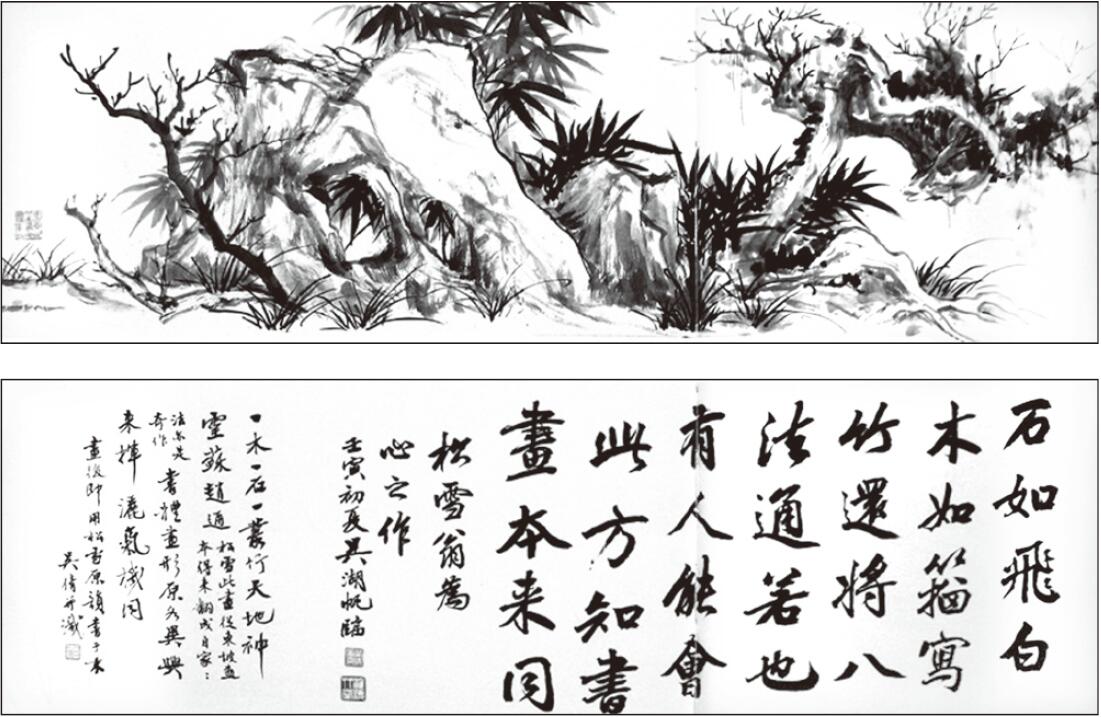 石如飛白
木如籀寫
竹還將八
法通若也
有人能會
此方知書
畫本来同
松雪翁為
心之作
壬寅初夏吳湖帆臨
一木一石一叢竹天地神
靈蘇趙通
松雪此畫從東坡畫
本得来翻成自家
奇作
書體畫形原異興
来揮灑氣機同
畫後即用松雪原韻書于末
吳倩并識